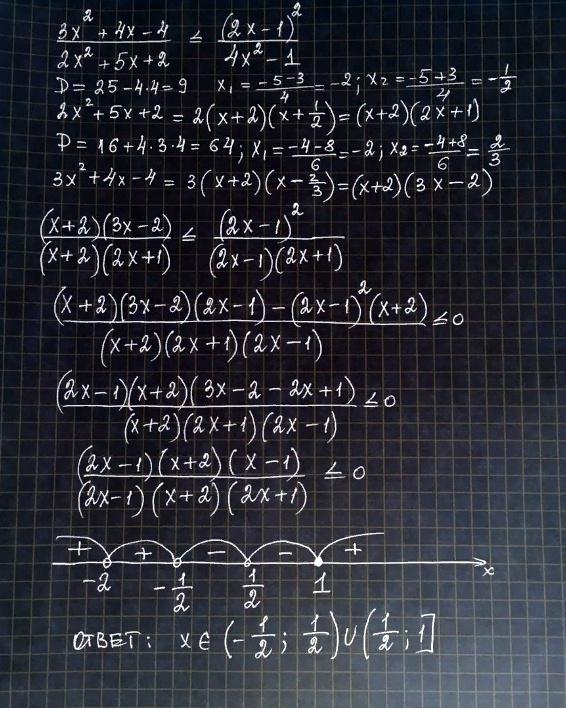 (3x² + 4x - 4)/(2x² + 5x + 2) ≤ (2x - 1)²/(4x² - 1)
D = 25 - 4·4 = 9 x₁ = (-5-3)/4 = -2; x₂ = (-5+3)/4 = -1/2
2x² + 5x + 2 = 2(x+2)(x + 1/2) = (x+2)(2x+1)
D = 16 + 4·3·4 = 64; x₁ = (-4-8)/6 = -2; x₂ = (-4+8)/6 = 2/3
3x² + 4x - 4 = 3(x+2)(x - 2/3) = (x+2)(3x-2)
(x+2)(3x-2)/(x+2)(2x+1) ≤ (2x-1)²/(2x-1)(2x+1)
((x+2)(3x-2)(2x-1) - (2x-1)²(x+2))/(x+2)(2x+1)(2x-1) ≤ 0
(2x-1)(x+2)(3x-2-2x+1)/(x+2)(2x+1)(2x-1) ≤ 0
(2x-1)(x+2)(x-1)/(2x-1)(x+2)(2x+1) ≤ 0
+ + - - +
-2 -1/2 1/2 1 x
ОТВЕТ: x ∈ (-1/2; 1/2) ∪ (1/2; 1]